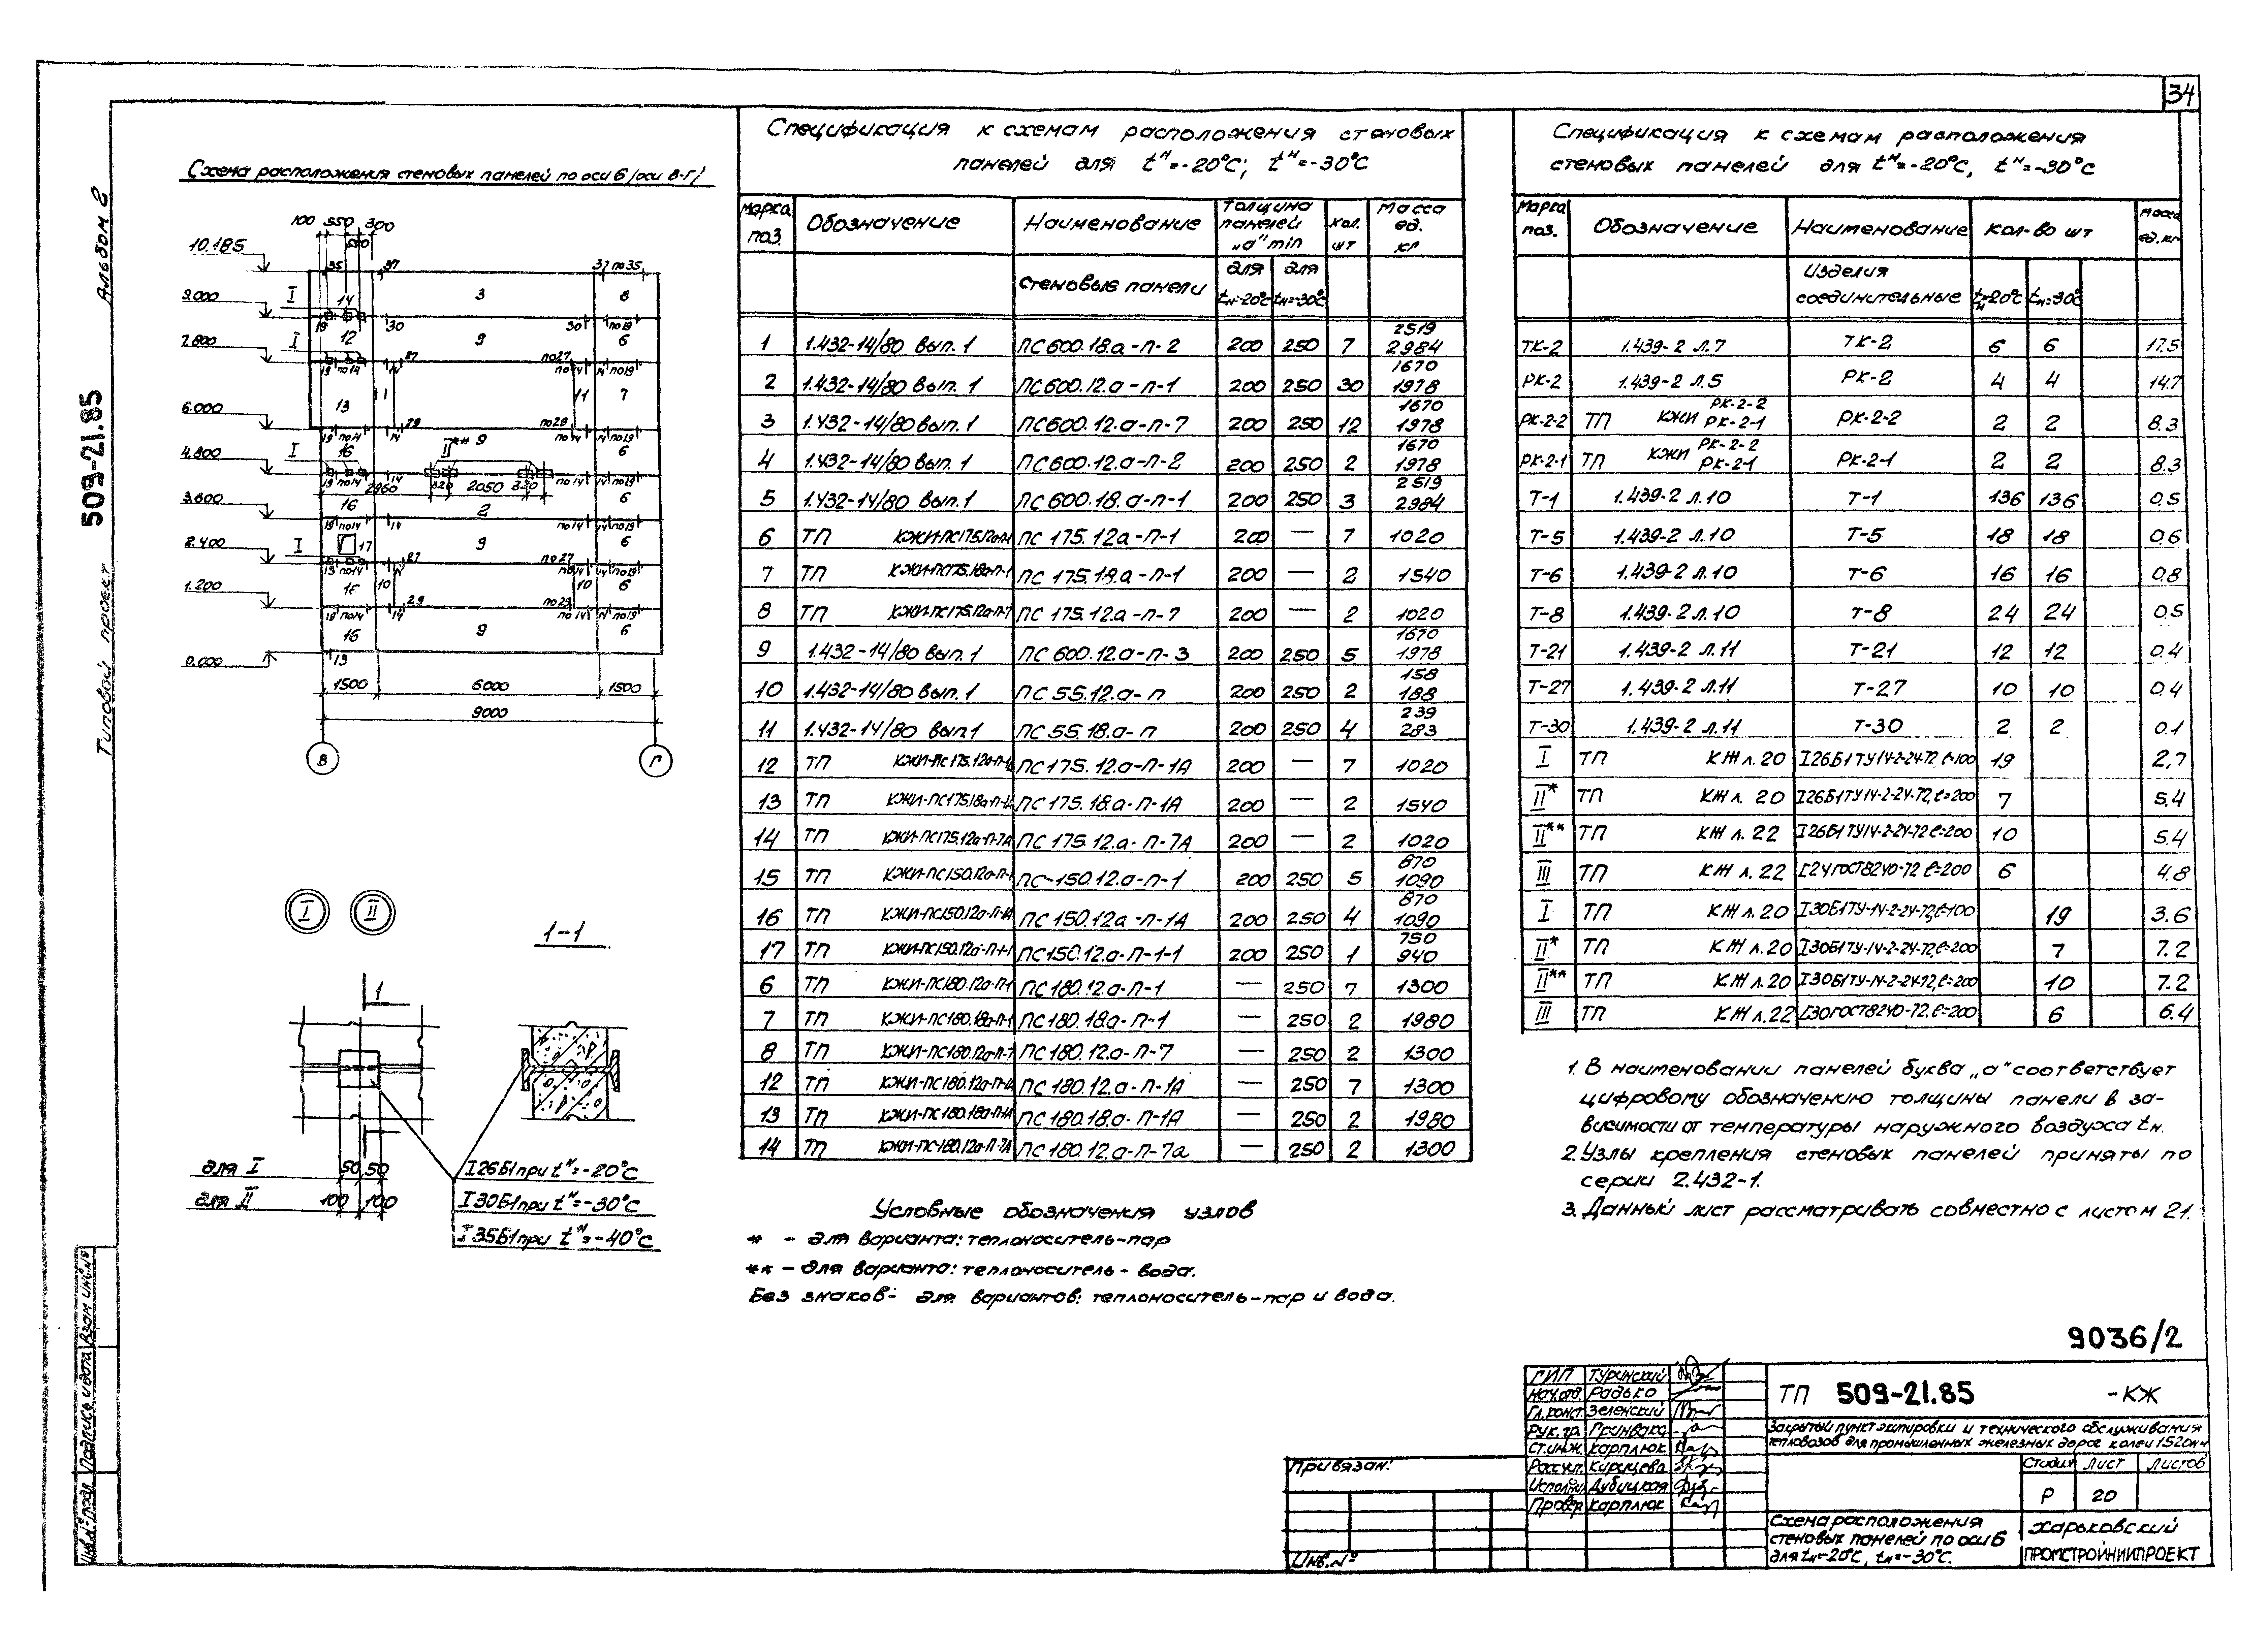 34
Альбом 2
Типовой проект 509-21.85
Схема расположения стеновых панелей по оси Б /оси В-Г/
100 550 300
10.185
9.000
7.800
6.000
4.800
3.600
2.400
1.200
0.000
2960 320 2050 330
1500 6000 1500
9000
В Г
I II
1-1
1
для I 50 50
для II 100 100
I 26Б1 при tн=-20°С
I 30Б1 при tн=-30°С
I 35Б1 при tн=-40°С
Спецификация к схемам расположения стеновых
панелей для tн=-20°С; tн=-30°С
Марка поз. Обозначение Наименование Толщина панелей „а" min кол. шт Масса ед. кг
стеновые панели для tн-20°С для tн=-30°С
1 1.432-14/80 вып. 1 ПС 600.18.а-п-2 200 250 7 2519 2984
2 1.432-14/80 вып. 1 ПС 600.12.а-п-1 200 250 30 1670 1978
3 1.432-14/80 вып. 1 ПС 600.12.а-п-7 200 250 12 1670 1978
4 1.432-14/80 вып. 1 ПС 600.12.а-п-2 200 250 2 1670 1978
5 1.432-14/80 вып. 1 ПС 600.18.а-п-1 200 250 3 2519 2984
6 ТП КЖИ-ПС175.12а-п-1 ПС 175.12а-п-1 200 — 7 1020
7 ТП КЖИ-ПС175.18а-п-1 ПС 175.18.а-п-1 200 — 2 1540
8 ТП КЖИ-ПС175.12а-п-7 ПС 175.12.а-п-7 200 — 2 1020
9 1.432-14/80 вып. 1 ПС 600.12.а-п-3 200 250 5 1670 1978
10 1.432-14/80 вып. 1 ПС 55.12.а-п 200 250 2 158 188
11 1.432-14/80 вып.1 ПС 55.18.а-п 200 250 4 239 283
12 ТП КЖИ-ПС175.12а-п-1А ПС 175.12.а-п-1А 200 — 7 1020
13 ТП КЖИ-ПС175.18а-п-1А ПС 175.18.а-п-1А 200 — 2 1540
14 ТП КЖИ-ПС175.12а-п-7А ПС 175.12.а-п-7А 200 — 2 1020
15 ТП КЖИ-ПС150.12а-п-1 ПС-150.12.а-п-1 200 250 5 870 1090
16 ТП КЖИ-ПС150.12а-п-1А ПС 150.12а-п-1А 200 250 4 870 1090
17 ТП КЖИ-ПС150.12а-п-1-1 ПС150.12.а-п-1-1 200 250 1 750 940
6 ТП КЖИ-ПС180.12а-п-1 ПС 180.12.а-п-1 — 250 7 1300
7 ТП КЖИ-ПС180.18а-п-1 ПС 180.18.а-п-1 — 250 2 1980
8 ТП КЖИ-ПС180.12а-п-7 ПС 180.12.а-п-7 — 250 2 1300
12 ТП КЖИ-ПС180.12а-п-1А ПС 180.12.а-п-1А — 250 7 1300
13 ТП КЖИ-ПС180.18а-п-1А ПС 180.18.а-п-1А — 250 2 1980
14 ТП КЖИ-ПС180.12а-п-7А ПС 180.12.а-п-7а — 250 2 1300
Условные обозначения узлов
* - для варианта: теплоноситель-пар
** - для варианта: теплоноситель-вода.
Без знаков- для вариантов: теплоноситель-пар и вода.
Спецификация к схемам расположения
стеновых панелей для tн=-20°С, tн=-30°С
Марка поз. Обозначение Наименование кол-во шт Масса ед.кг
Изделия соединительные tн=-20°С tн=-30°С
ТК-2 1.439-2 л.7 ТК-2 6 6 17.5
РК-2 1.439-2 л.5 РК-2 4 4 14.7
РК-2-2 ТП КЖИ РК-2-2 РК-2-1 РК-2-2 2 2 8.3
РК-2-1 ТП КЖИ РК-2-2 РК-2-1 РК-2-1 2 2 8.3
Т-1 1.439-2 л.10 Т-1 136 136 0.5
Т-5 1.439-2 л.10 Т-5 18 18 0.6
Т-6 1.439-2 л.10 Т-6 16 16 0.8
Т-8 1.439-2 л.10 Т-8 24 24 0.5
Т-21 1.439-2 л.11 Т-21 12 12 0.4
Т-27 1.439-2 л.11 Т-27 10 10 0.4
Т-30 1.439-2 л.11 Т-30 2 2 0.1
I ТП КЖ л.20 I26Б1 ТУ14-2-24-72, ℓ=100 19 2,7
II* ТП КЖ л. 20 I26Б1 ТУ14-2-24-72, ℓ=200 7 5.4
II** ТП КЖ л. 22 I26Б1 ТУ14-2-24-72 ℓ=200 10 5.4
III ТП КЖ л. 22 [24 ГОСТ8240-72 ℓ=200 6 4.8
I ТП КЖ л.20 I30Б1ТУ-14-2-24-72, ℓ=100 19 3.6
II* ТП КЖ л.20 I30Б1ТУ-14-2-24-72, ℓ=200 7 7.2
II** ТП КЖ л.20 I30Б1ТУ-14-2-24-72, ℓ=200 10 7.2
III ТП КЖ л.22 [30ГОСТ8240-72, ℓ=200 6 6.4
1. В наименовании панелей буква „а" соответствует
цифровому обозначению толщины панели в за-
висимости от температуры наружного воздуха tн.
2. Узлы крепления стеновых панелей приняты по
серии 2.432-1.
3. Данный лист рассматривать совместно с листом 21.
9036/2
ГИП Туринский
Нач.отд. Радько
Гл.конст. Зеленский
Рук.гр.
Ст.инж. Карплюк
Исполн. Дубицкая
Провер. Карплюк
ТП 509-21.85 -КЖ
Закрытый пункт экипировки и технического обслуживания
тепловозов для промышленных железных дорог колеи 1520мм
Стадия Лист Листов
Р 20
Схема расположения
стеновых панелей по оси Б
для tн=-20°С, tн=-30°С.
Харьковский
ПРОМСТРОЙНИИПРОЕКТ
Привязан:
Инв.№
Инв.№ подл. Подпись и дата Взам.инв.№